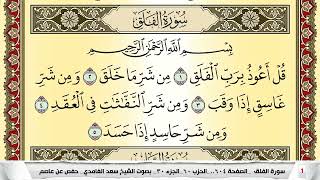 سُورَةُ الفَلَقِ
بِسْمِ اللَّهِ الرَّحْمَٰنِ الرَّحِيمِ
قُلْ أَعُوذُ بِرَبِّ الْفَلَقِ ١ مِن شَرِّ مَا خَلَقَ ٢ وَمِن شَرِّ
غَاسِقٍ إِذَا وَقَبَ ٣ وَمِن شَرِّ النَّفَّاثَاتِ فِي الْعُقَدِ ٤
وَمِن شَرِّ حَاسِدٍ إِذَا حَسَدَ ٥
سورة الفلق .. الصفحة ٦٠٤ .. الحزب ٦٠ .. الجزء ٣٠ .. بصوت الشيخ سعد الغامدي .. حفص عن عاصم 1